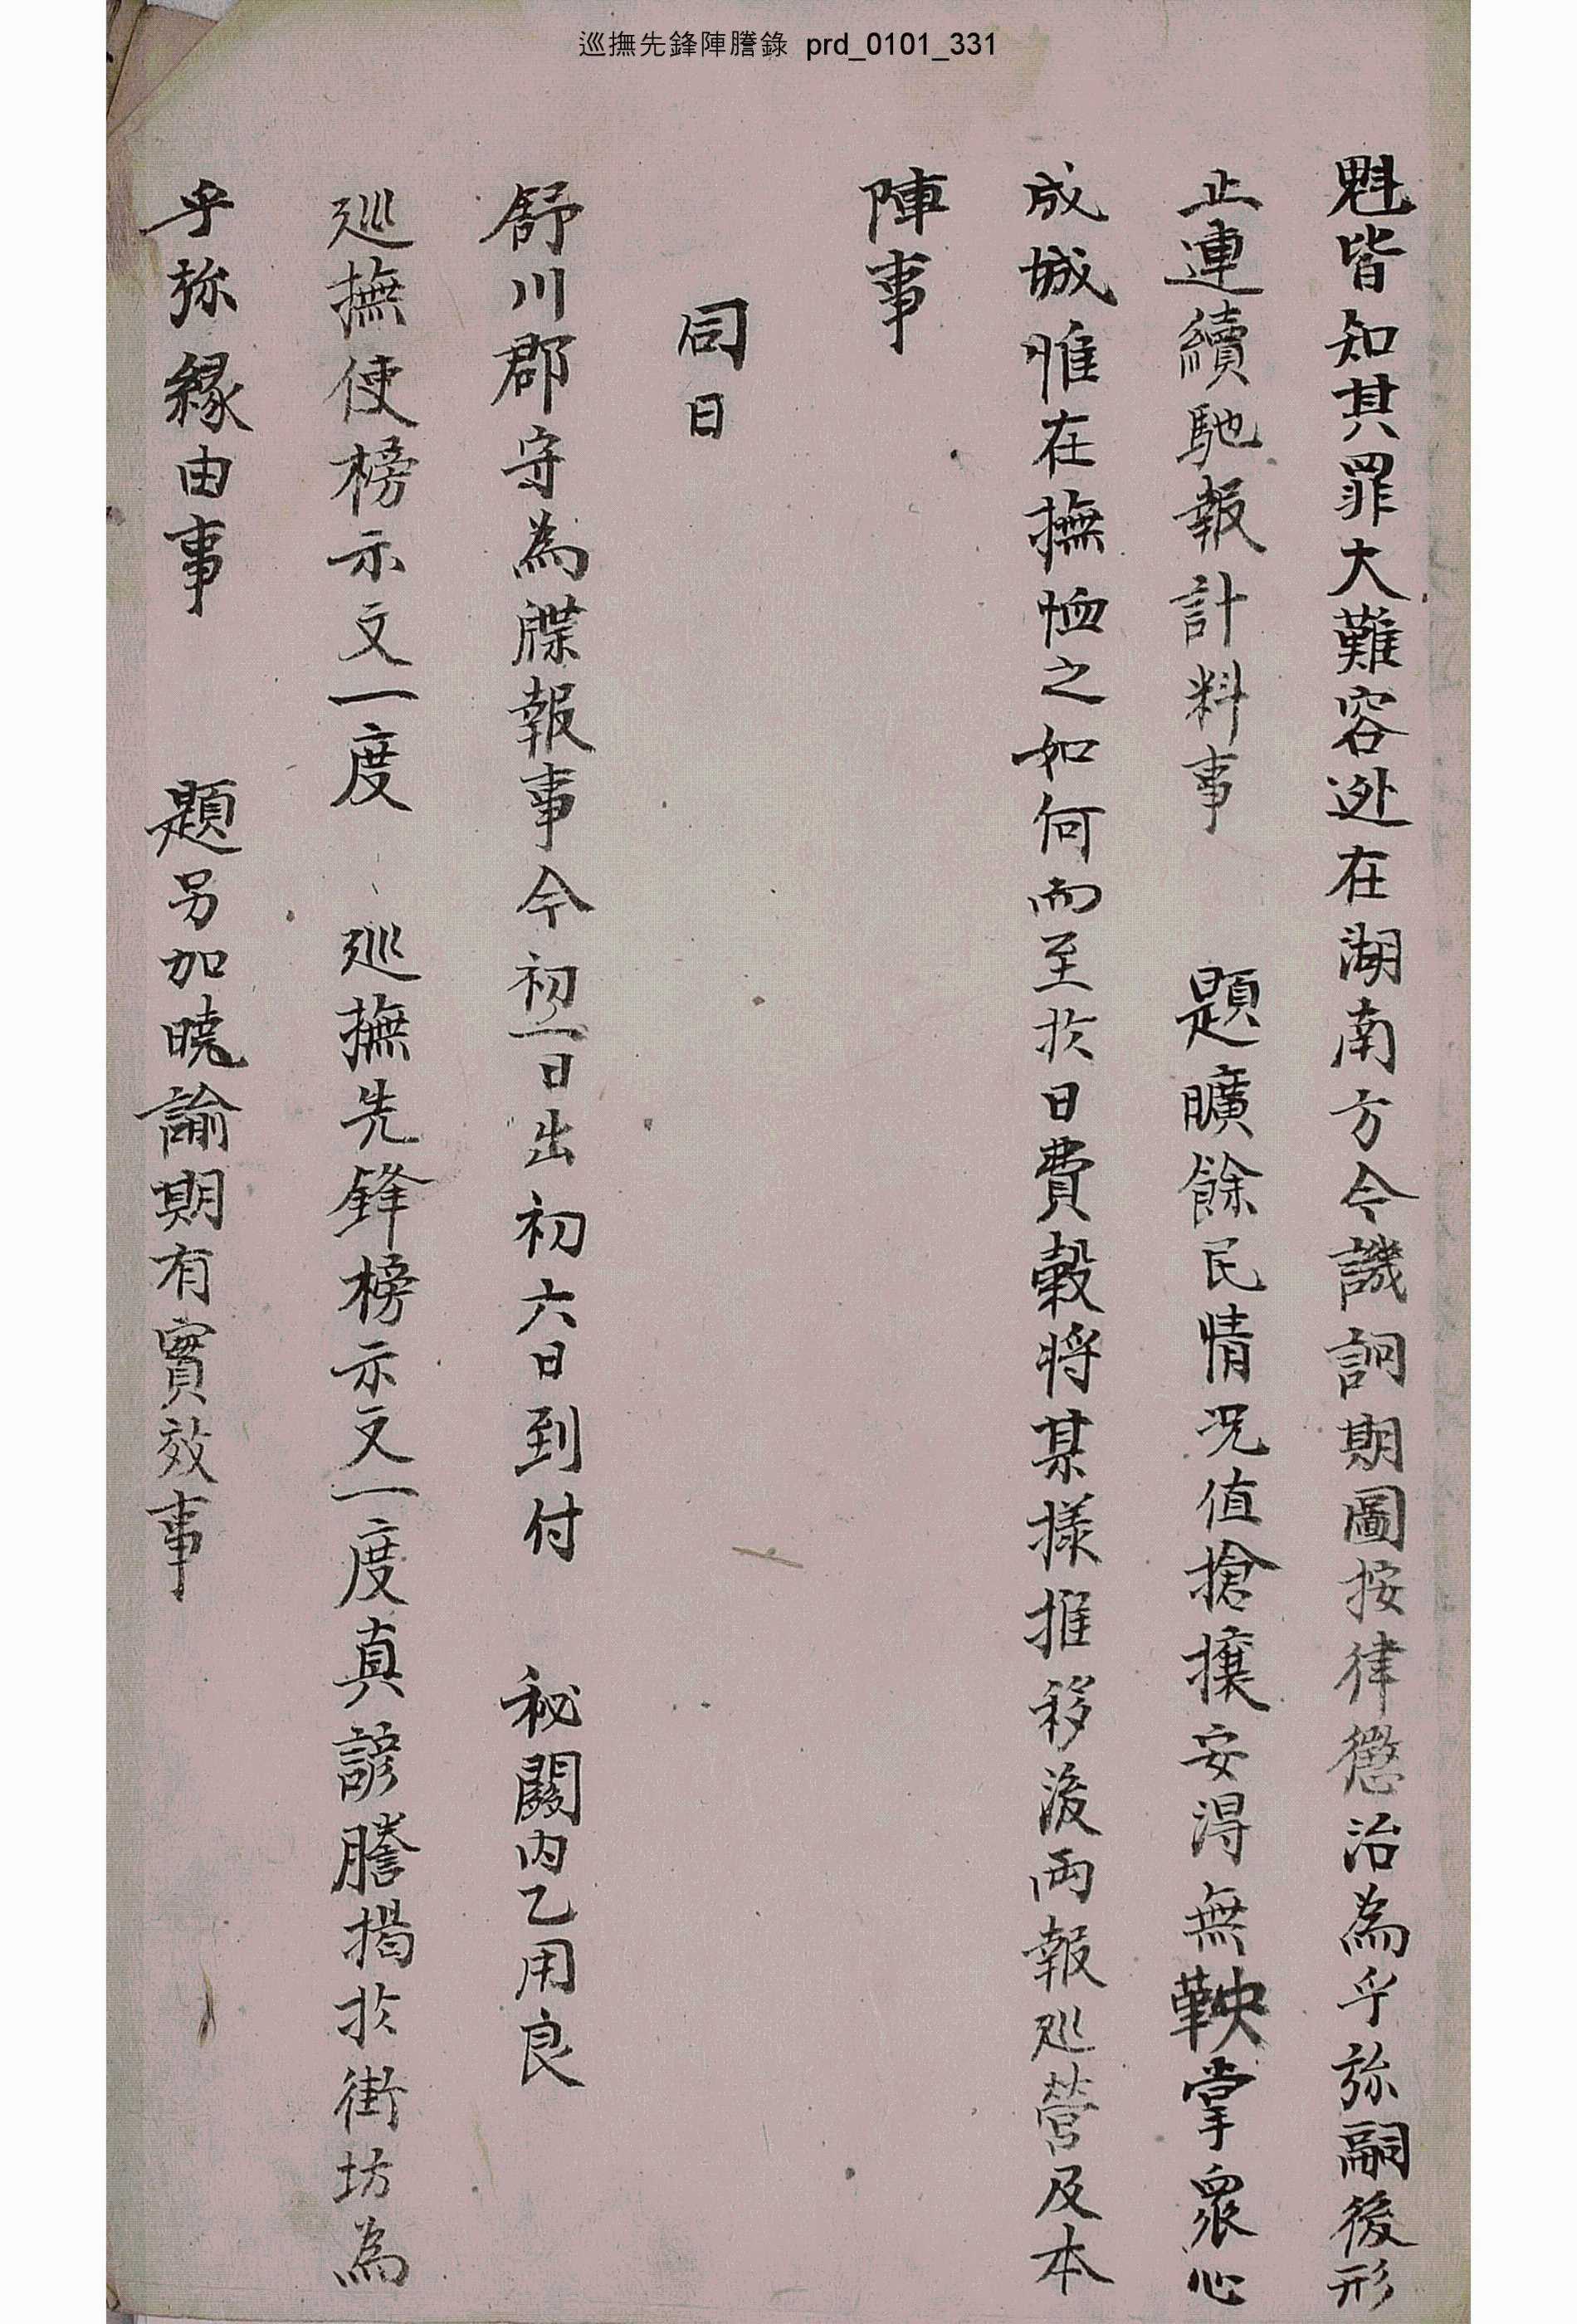 巡撫先鋒陣謄錄 prd_0101_331
魁皆知其罪大難容迯在湖南方令譏詗期圖按律懲治為乎弥嗣後形
止連續馳報計料事 題曠餘民情况值搶攘安淂無鞅掌衆心
成城惟在撫恤之如何而至於日費穀將某㨾推移後両報廵營及本
陣事
同日
舒川郡守為牒報事今初一日出初六日到付 秘關內乙用良
巡撫使榜示文一度 巡撫先鋒榜示文一度真諺謄揭於街坊為
乎弥緣由事 題另加曉諭期有實效事